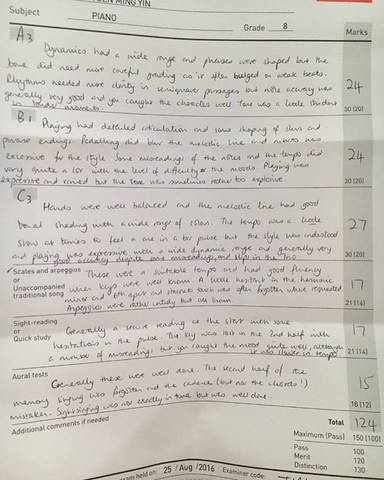 EN MING YIN
Subject PIANO Grade 8 Marks
A3
Dynamics had a wide range and phrases were shaped but the
tone did need more careful grading as it often bulged on weak beats.
Rhythms needed more clarity in semiquaver passages but note accuracy was
generally very good and you caught the character well. Tone was a little strident
in louder moments.
24
30 (20)
B1
Playing had detailed articulation and some shaping of slurs and
phrase endings. Pedalling did blur the melodic line and rubato was
excessive for the style. Some misreadings of the notes and the tempo did
vary quite a lot with the level of difficulty or the moods. Playing was
expressive and varied but the tone was sometimes rather too explosive.
24
30 (20)
C3
Hands were well balanced and the melodic line had good
tonal shading with a wide range of colour. The tempo was a little
slow at times to feel a one in a bar pulse but the style was understood
and playing was expressive with a wide dynamic range and generally very
good accuracy despite some misreadings, and slips in the Trio
27
30 (20)
Scales and arpeggios
or
Unaccompanied
traditional song
These were a suitable tempo and had good fluency
when keys were well known. A little hesitant in the harmonic
minor and 6th apart and staccato touch was often forgotten when requested
Arpeggios were rather untidy but all known.
17
21 (14)
Sight-reading
or
Quick study
Generally a secure reading at the start with some
hesitations in the pulse. The key was lost in the 2nd half with
a number of misreadings but you caught the mood quite well, although
it was slower in tempo
17
21 (14)
Aural tests
Generally these were well done. The second half of the
memory singing was forgotten and the cadence (but not the chords!)
mistaken. Sightsinging was not exactly in tune but was well done.
15
18 (12)
Additional comments if needed
Total 124
Maximum (Pass) 150 (100)
Pass 100
Merit 120
Distinction 130
am held on: 25 / Aug / 2016 Examiner code: